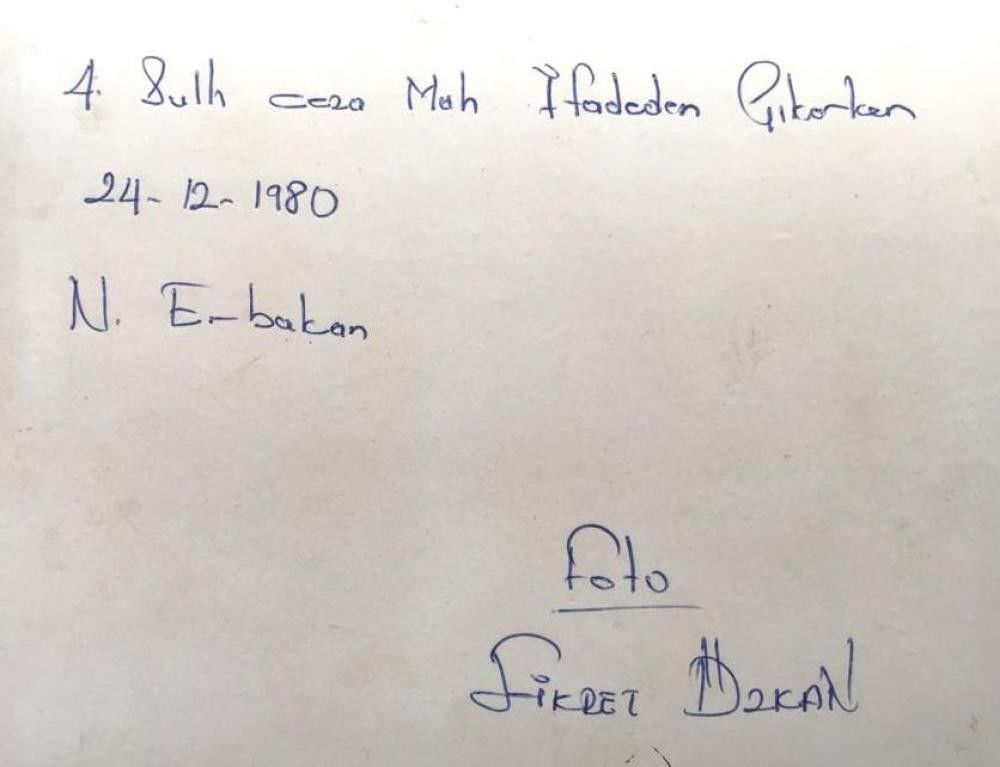 4. Sulh ceza Mah İfadeden Çıkarken
24-12-1980
N. Erbakan
Foto
FİKRET